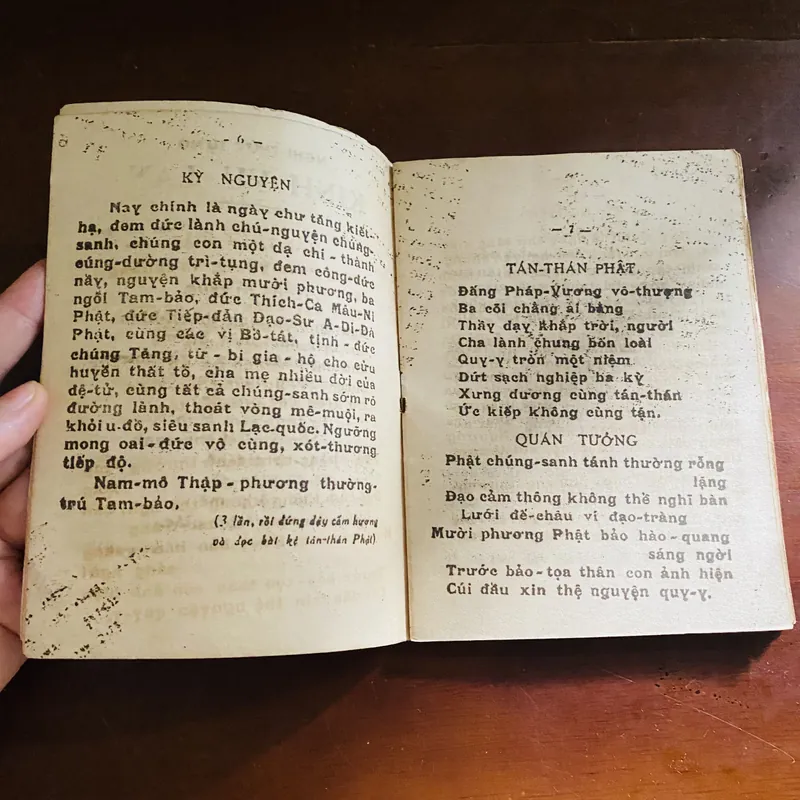 - 6 -
KỲ NGUYỆN
Nay chính là ngày chư tăng kiết-
hạ, đem đức lành chú-nguyện chúng-
sanh, chúng con một dạ chí-thành
cúng-dường trì-tụng, đem công-đức
nầy, nguyện khắp mười phương, ba
ngôi Tam-bảo, đức Thích-Ca Mâu-Ni
Phật, đức Tiếp-dẫn Đạo-Sư A-Di-Đà
Phật, cùng các vị Bồ-tát, tịnh-đức
chúng Tăng, từ-bi gia-hộ cho cửu
huyền thất tổ, cha mẹ nhiều đời của
đệ-tử, cùng tất cả chúng-sanh sớm rõ
đường lành, thoát vòng mê-muội, ra
khỏi u-đồ, siêu sanh Lạc-quốc. Ngưỡng
mong oai-đức vô cùng, xót-thương
tiếp độ.
Nam-mô Thập-phương thường-
trú Tam-bảo.
(3 lần, rồi đứng dậy cắm hương
và đọc bài kệ tán-thán Phật)
- 7 -
TÁN-THÁN PHẬT
Đấng Pháp-Vương vô-thượng
Ba cõi chẳng ai bằng
Thầy dạy khắp trời, người
Cha lành chung bốn loài
Quy-y trốn một niệm
Dứt sạch nghiệp ba kỳ
Xưng dương cùng tán-thán
Ức kiếp không cùng tận.
QUÁN TƯỞNG
Phật chúng-sanh tánh thường rỗng
lặng
Đạo cảm thông không thể nghĩ bàn
Lưới đế-châu ví đạo-tràng
Mười phương Phật bảo hào-quang
sáng ngời
Trước bảo-tọa thân con ảnh hiện
Cúi đầu xin thệ nguyện quy-y.